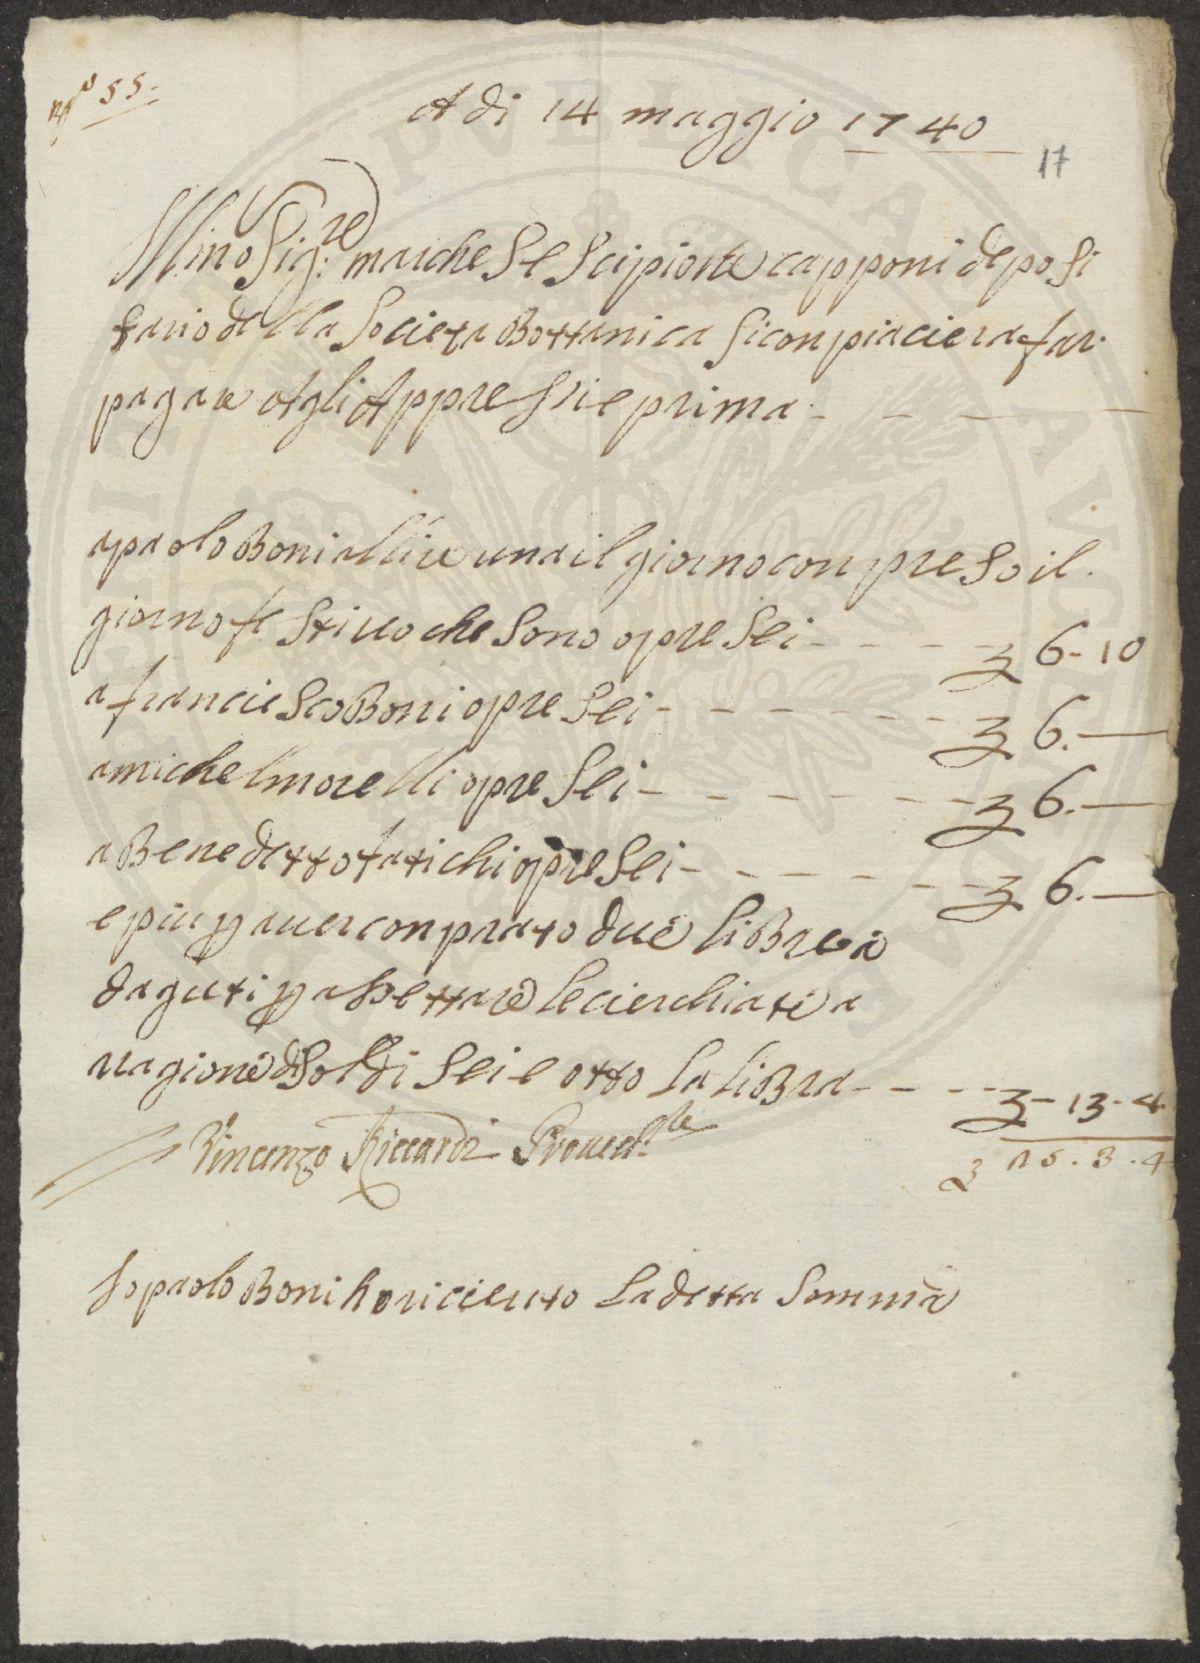 N.o 55.
A di 14 maggio 1740
17
Illmo Sig:re marchese Scipione capponi deposi
tario della Societa Bottanica si conpiaciera far
pagare Agli Appressi e prima
a paolo Boni a llire una il giorno conpreso il
giorno festivo che sono opre sei 6-10
a franciesco Boni opre sei 6.
a michel morelli opre sei 6.
a Benedetto fatichi opre sei 6.
e piu p aver conprato due libre
di aguti p assettare le cierchiate a
ragione di soldi sei e otto la libra - 13 - 4
Vincenzo Riccardi Proved.re
25.3.4
Io paolo Boni ho riceuto la detta somma